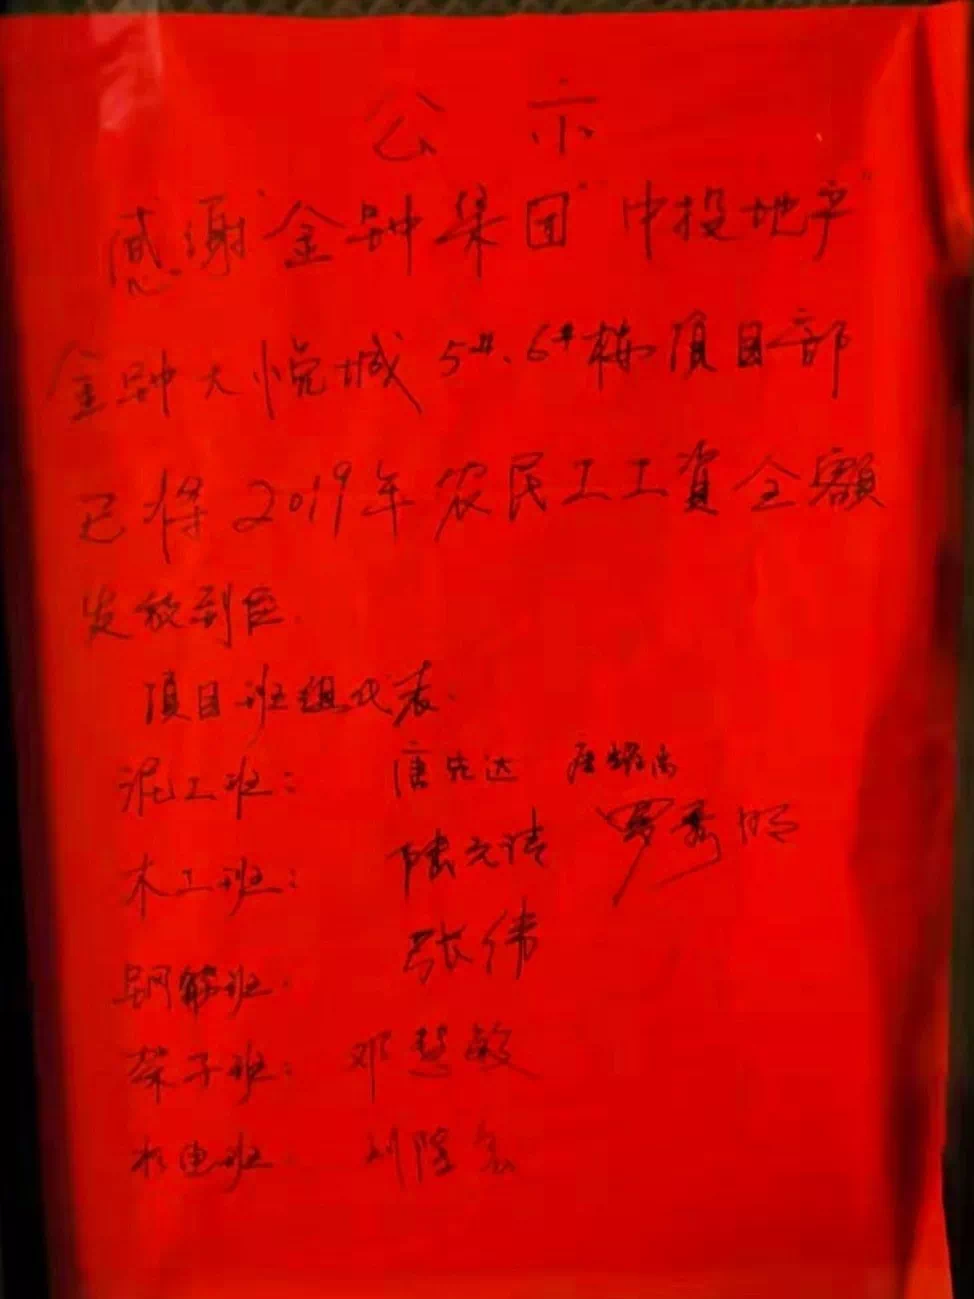 公示
感谢"金钟集团""中投地产"
金钟大悦城5#、6#栋项目部
已将2019年农民工工资全额
发放到位.
项目班组代表.
泥工班: 唐先达
木工班: 陆元清 罗秀明
钢筋班. 张伟
架子班: 邓慧敏
水电班. 刘隆